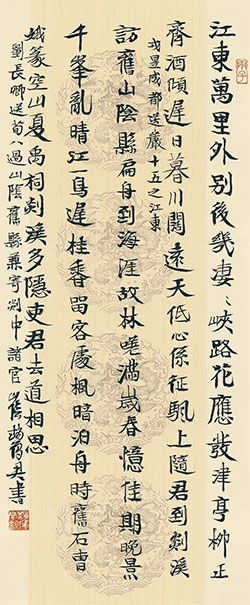 江東萬里外別後幾妻〻峽路花應發津亭柳正
齊酒傾遲日暮川闊遠天低心係征帆上隨君到剡溪
戎昱成都送嚴十五之江東
訪舊山陰縣扁舟到海涯故林嗟滿歲春憶佳期晚景
千峯亂晴江一鳥遲桂香留客處楓暗泊舟時舊石曹
娥篆空山夏禹祠剡溪多隱吏君去道相思
劉長卿送荀八過山陰舊縣兼寄剡中諸官 書